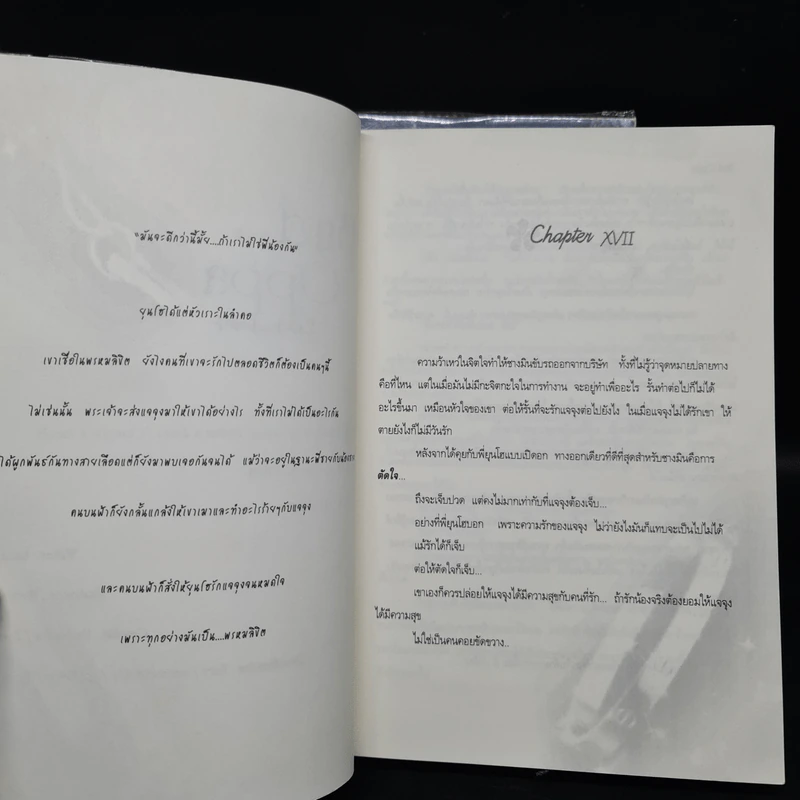 "มันจะดีกว่านี้มั้ย...ถ้าเราไม่ใช่พี่น้องกัน"
ยุนโฮได้แต่หัวเราะในลำคอ
เขาเชื่อในพรหมลิขิต ยังไงคนที่เขาจะรักไปตลอดชีวิตก็ต้องเป็นคนๆนี้
ไม่เช่นนั้น พระเจ้าจะส่งแจจุงมาให้เขาได้อย่างไร ทั้งที่เราไม่ได้เป็นอะไรกัน
ได้ผูกพันธ์กันทางสายเลือดแต่ก็ยังมาพบเจอกันจนได้ แม้ว่าจะอยู่ในฐานะพี่ชายกับน้องชาย
คนบนฟ้าก็ยังกลั่นแกล้งให้เขาเมาและทำอะไรร้ายๆกับแจจุง
และคนบนฟ้าก็สั่งให้ยุนโฮรักแจจุงจนหมดใจ
เพราะทุกอย่างมันเป็น....พรหมลิขิต
Chapter XVII
ความว้าเหว่ในจิตใจทำให้ชางมินขับรถออกจากบริษัท ทั้งที่ไม่รู้ว่าจุดหมายปลายทาง
คือที่ไหน แต่ในเมื่อมันไม่มีกะจิตกะใจในการทำงาน จะอยู่ทำเพื่ออะไร รั้นทำต่อไปก็ไม่ได้
อะไรขึ้นมา เหมือนหัวใจของเขา ต่อให้รั้นที่จะรักแจจุงต่อไปยังไง ในเมื่อแจจุงไม่ได้รักเขา ให้
ตายยังไงก็ไม่มีวันรัก
หลังจากได้คุยกับพี่ยุนโฮแบบเปิดอก ทางออกเดียวที่ดีที่สุดสำหรับชางมินคือการ
ตัดใจ...
ถึงจะเจ็บปวด แต่คงไม่มากเท่ากับที่แจจุงต้องเจ็บ...
อย่างที่พี่ยุนโฮบอก เพราะความรักของแจจุง ไม่ว่ายังไงมันก็แทบจะเป็นไปไม่ได้
แม้รักได้ก็เจ็บ
ต่อให้ตัดใจก็เจ็บ...
เขาเองก็ควรปล่อยให้แจจุงได้มีความสุขกับคนที่รัก... ถ้ารักน้องจริงต้องยอมให้แจจุง
ได้มีความสุข
ไม่ใช่เป็นคนคอยขัดขวาง..